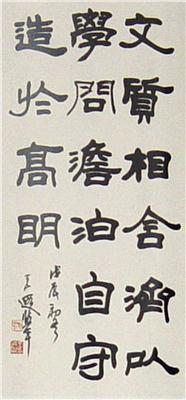 文質相含濟以
學問澹泊自守
造於高明
戊辰初冬
王遐舉